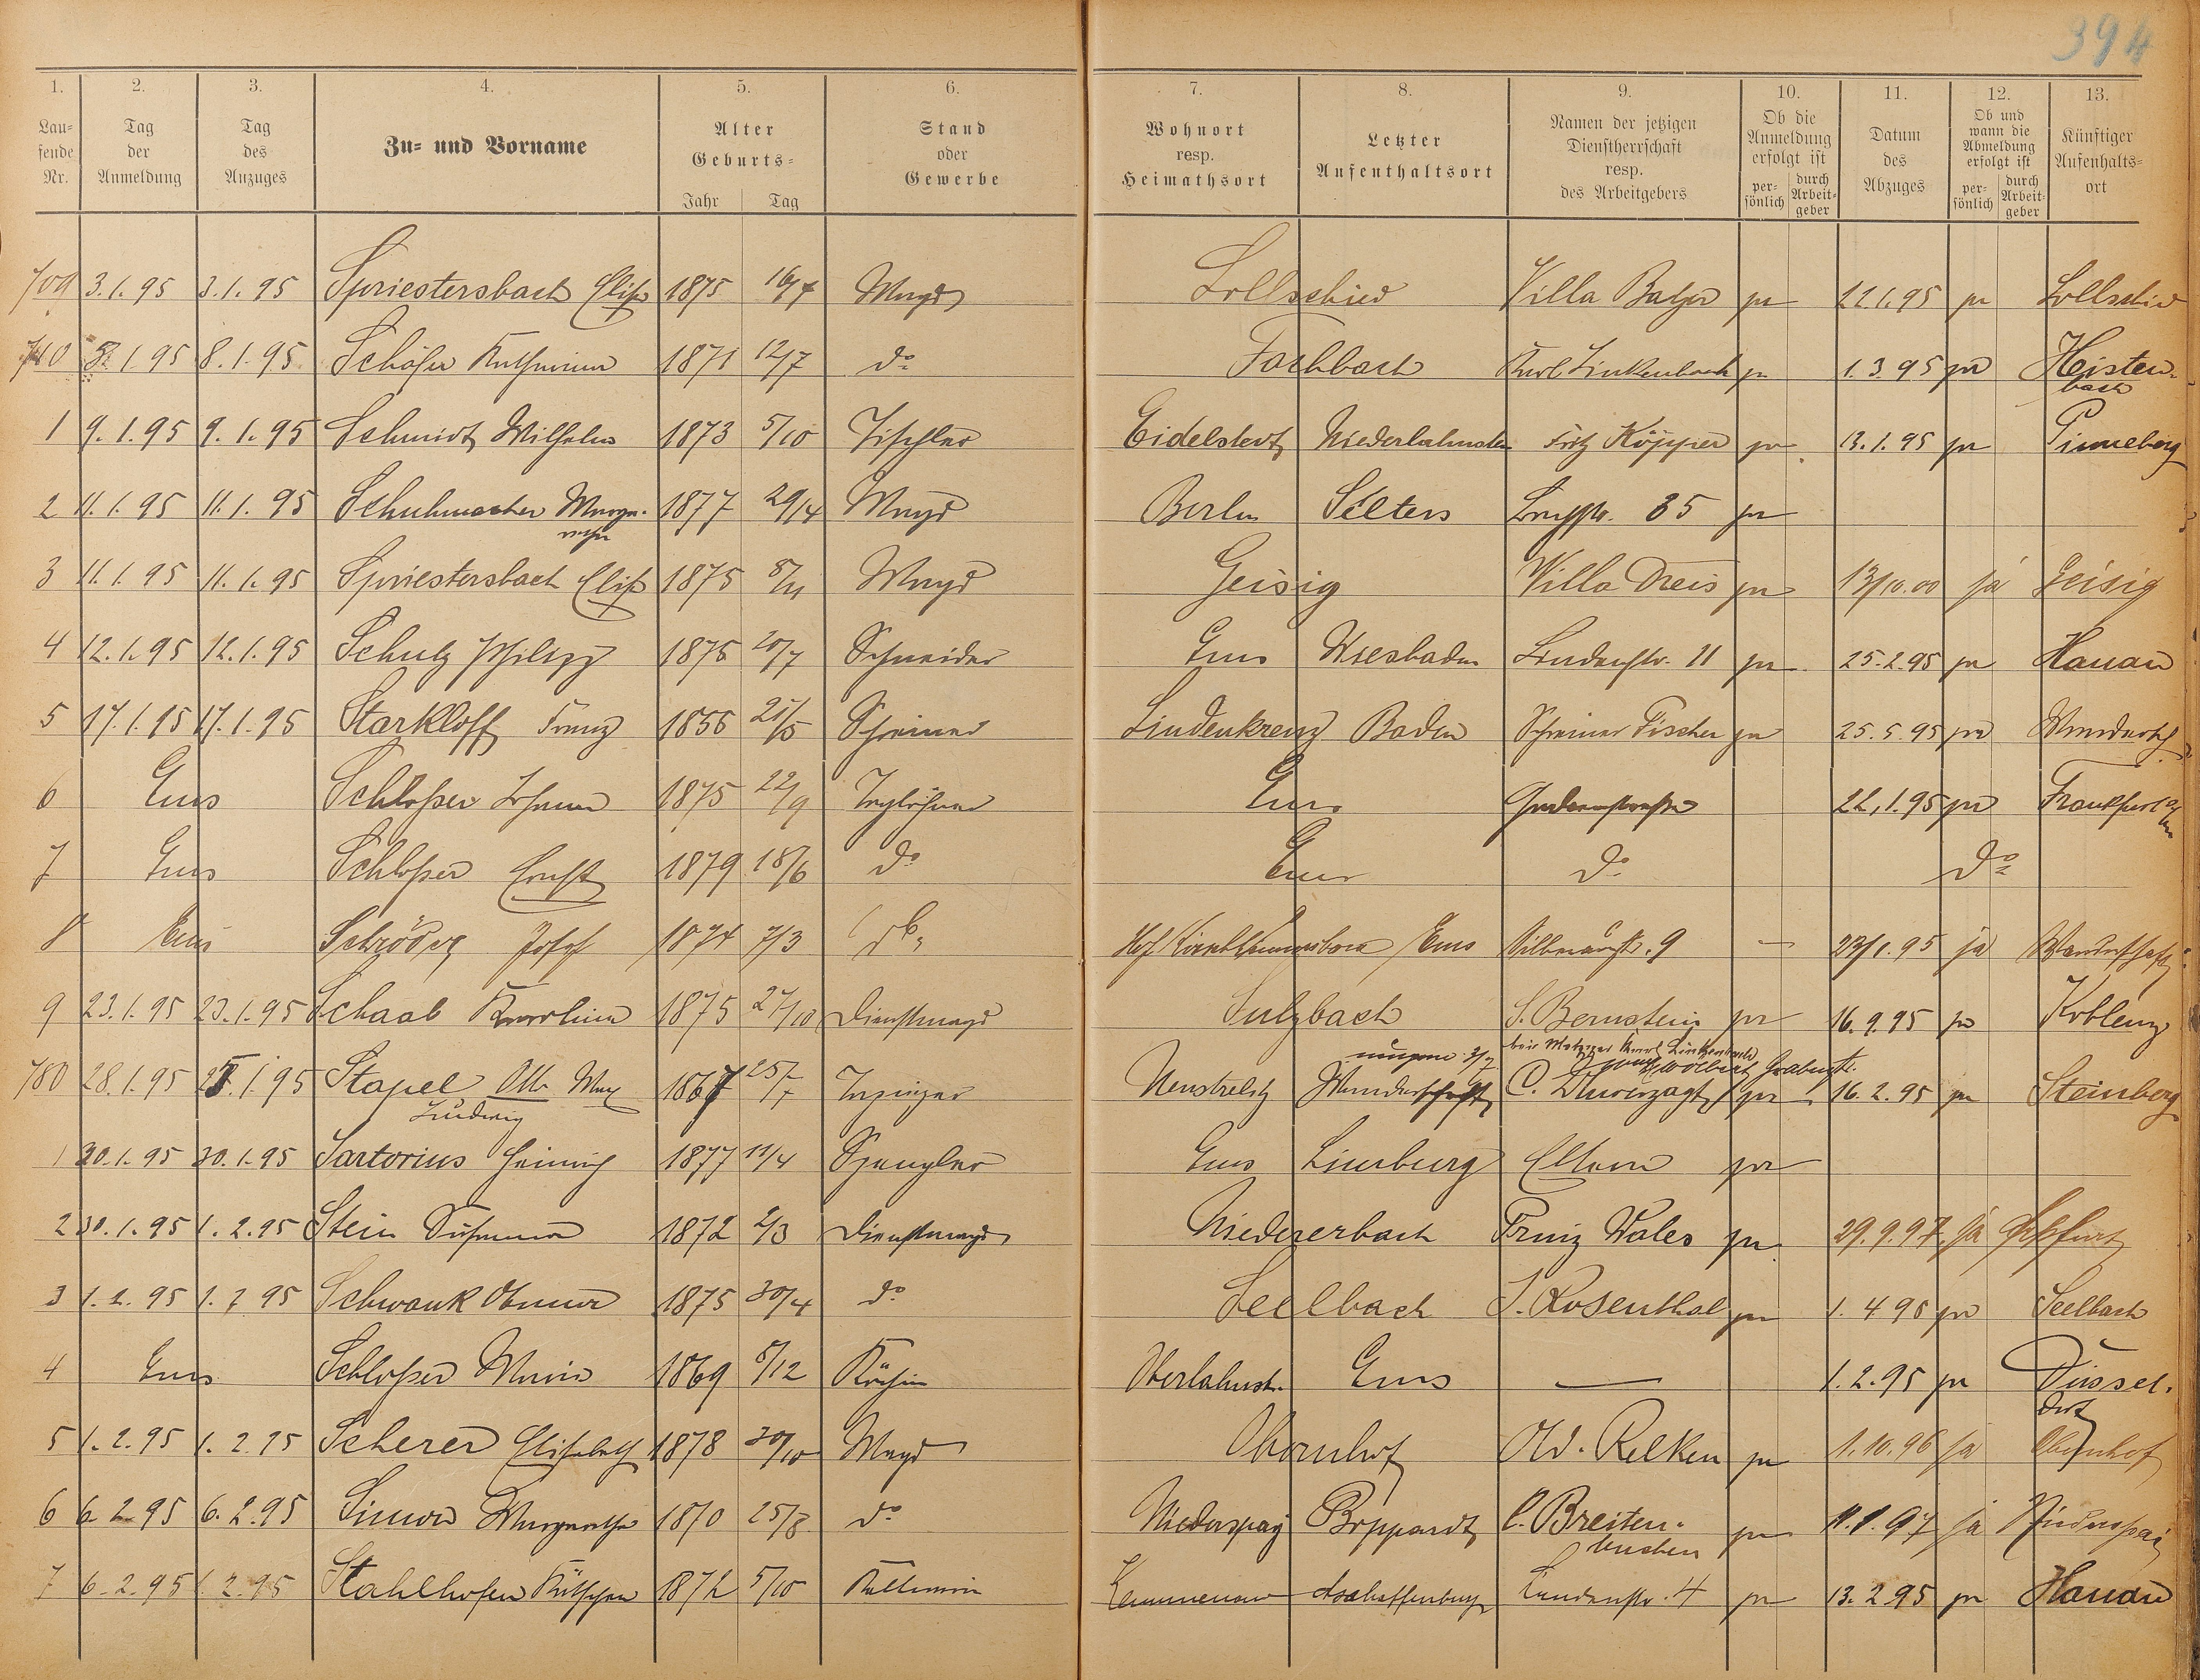 394
1. 2. 3. 4. 5. 6. 7. 8. 9. 10. 11. 12. 13.
Lau=
fende
Nr.
Tag
der
Anmeldung
Tag
des
Anzuges
Zu= und Vorname
Alter
Geburts=
Jahr Tag
Stand
oder
Gewerbe
Wohnort
resp.
Heimathsort
Letzter
Aufenthaltsort
Namen der jetzigen
Dienstherrschaft
resp.
des Arbeitgebers
Ob die
Anmeldung
erfolgt ist
per=
sönlich
durch
Arbeit=
geber
Datum
des
Abzuges
Ob und
wann die
Abmeldung
erfolgt ist
per=
sönlich
durch
Arbeit=
geber
Künftiger
Aufenhalts=
ort
3.1.95 3.1.95 Spriestersbach Elise 1875 16/7 Magd Lollschied Villa Balzer ja 22.1.95 ja Lollschied
8.1.95 8.1.95 Schäfer Katharina 1871 12/7 do Fachbach Karl Linkenbach ja 1.3.95 ja Heisten-
bach
1 9.1.95 9.1.95 Schmidt Wilhelm 1873 5/10 Tischler Eidelstedt Niederlahnstein Fritz Köpper ja 13.1.95 ja Pinneberg
2 11.1.95 11.1.95 Schuhmacher Marga-
rethe 1877 29/4 Magd Berlin Selters 35 ja
3 11.1.95 11.1.95 Spriestersbach Elise 1875 8/11 Magd Geisig Villa Dreis ja 13/10.00 ja Geisig
4 12.1.95 12.1.95 Schulz Philipp 1875 20/7 Schneider Ems Wiesbaden Lindenstr. 11 ja 25.2.95 ja Hanau
5 17.1.95 17.1.95 Starkloff Franz 1856 25/5 Schreiner Lindenkreuz Baden Schreiner Fischer ja 25.5.95 ja Wandersch.
6 Ems Schloßer Johann 1875 22/9 Taglöhner Ems 22.1.95 ja Frankfurt a/M
7 Ems Schloßer Ernst 1879 18/6 do Ems do do
8 Ems Schröder Josef 1874 7/3 do Ems 9 — 23/1.95 ja Wanderschaft
9 23.1.95 23.1.95 Schaab Karoline 1875 27/10 Dienstmagd Sulzbach S. Bernstein ja 16.9.95 ja Koblenz
bei Metzger Karl Linkenbach
Grabenstr.
780 28.1.95 1.95 Stapel Otto Max 1867 25/7 Tapezier Neustrelitz Wanderschaft C. Thuerzagt ja 16.2.95 ja Steinberg
Ludwig
1 30.1.95 30.1.95 Sartorius Heinrich 1877 11/4 Spengler Ems Limburg Eltern ja
2 30.1.95 1.2.95 Stein Susanna 1872 2/3 Dienstmagd Niedererbach Prinz Wales ja 29.9.97 ja Frkfurt
3 1.2.95 1.2.95 Schwank Anna 1875 30/4 do Seelbach J. Rosenthal ja 1.4.95 ja Seelbach
4 Ems Schloßer Maria 1869 8/12 Köchin Oberlahnst. Ems — 1.2.95 ja Düssel-
dorf
5 1.2.95 1.2.95 Scherer Elisabeth 1878 30/10 Magd Obernhof Old. Relken ja 1.10.96 ja Obernhof
6 6.2.95 6.2.95 Simon Margarethe 1870 25/8 do Niederspay Boppard C. Breiten-
buchen ja 11.1.97 ja Niederspai
7 6.2.95 1.2.95 Stahlhofen Kätchen 1872 5/10 Kellnerin Kemmenau Aschaffenburg Lindenstr. 4 ja 13.2.95 ja Hanau